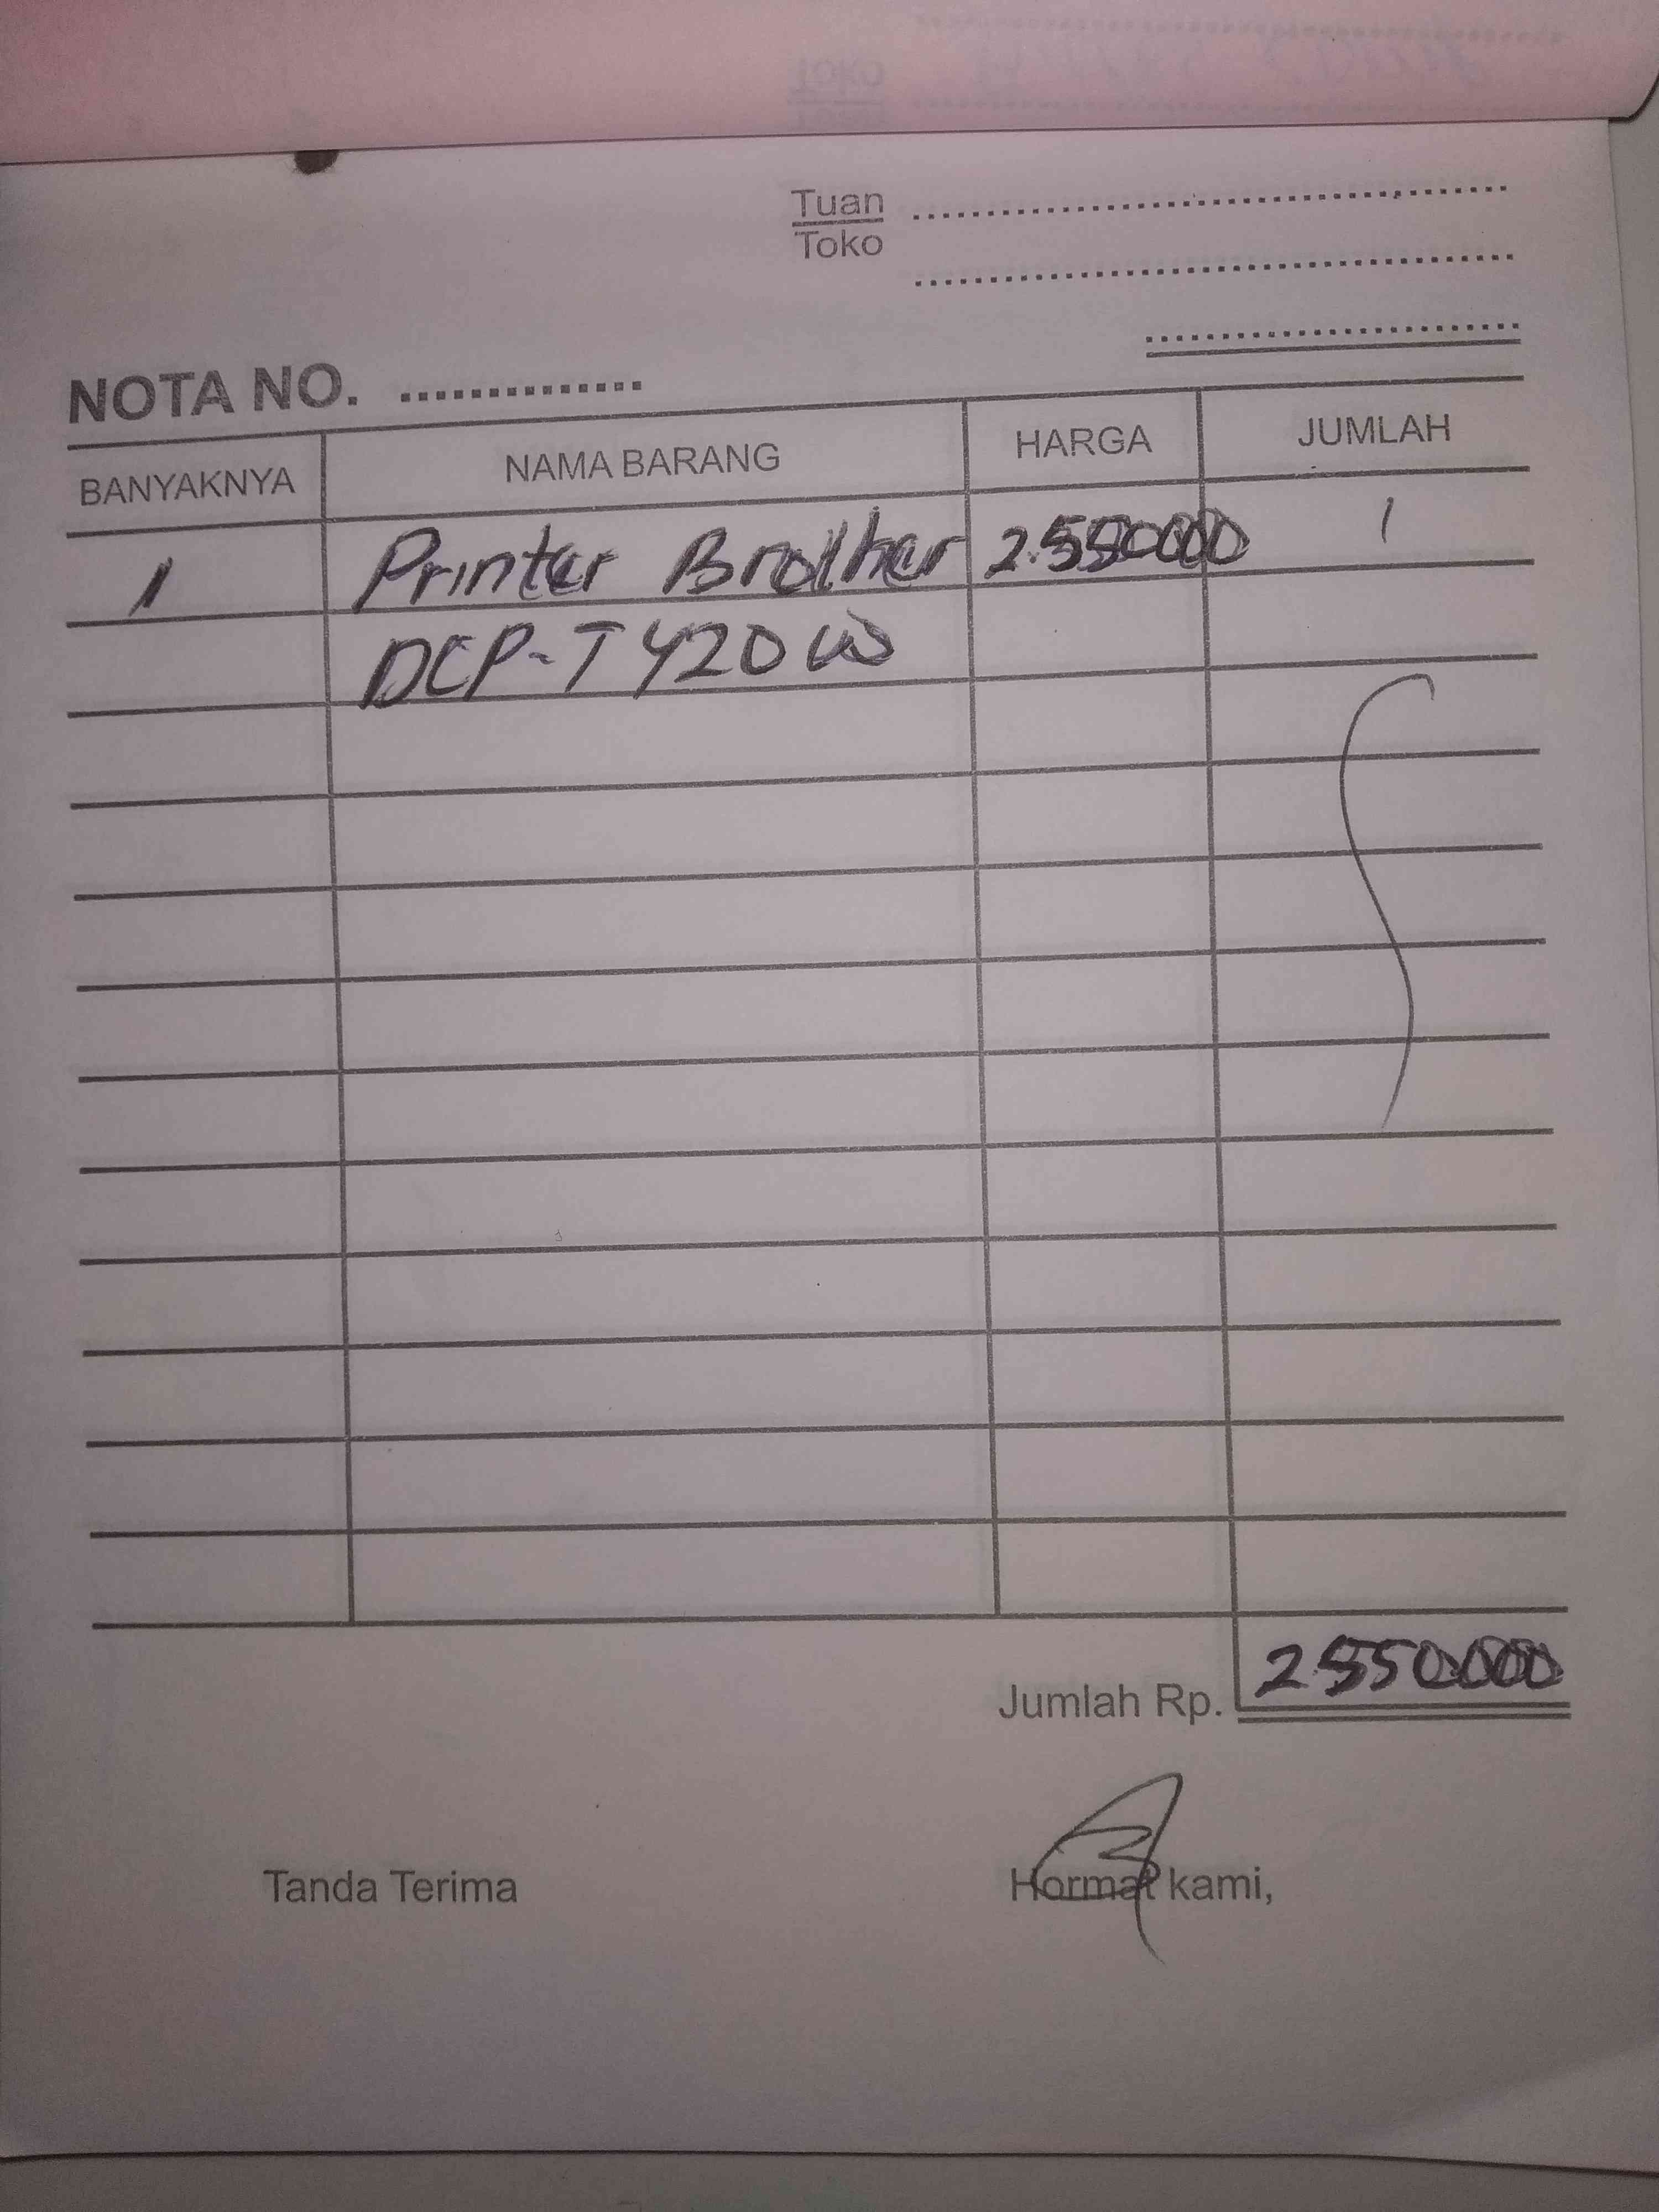 Tuan
Toko
NOTA NO.
BANYAKNYA NAMA BARANG HARGA JUMLAH
1 Printer Brother 2.550000 1
DCP-T420W
Jumlah Rp. 2550.000
Tanda Terima Hormat kami,